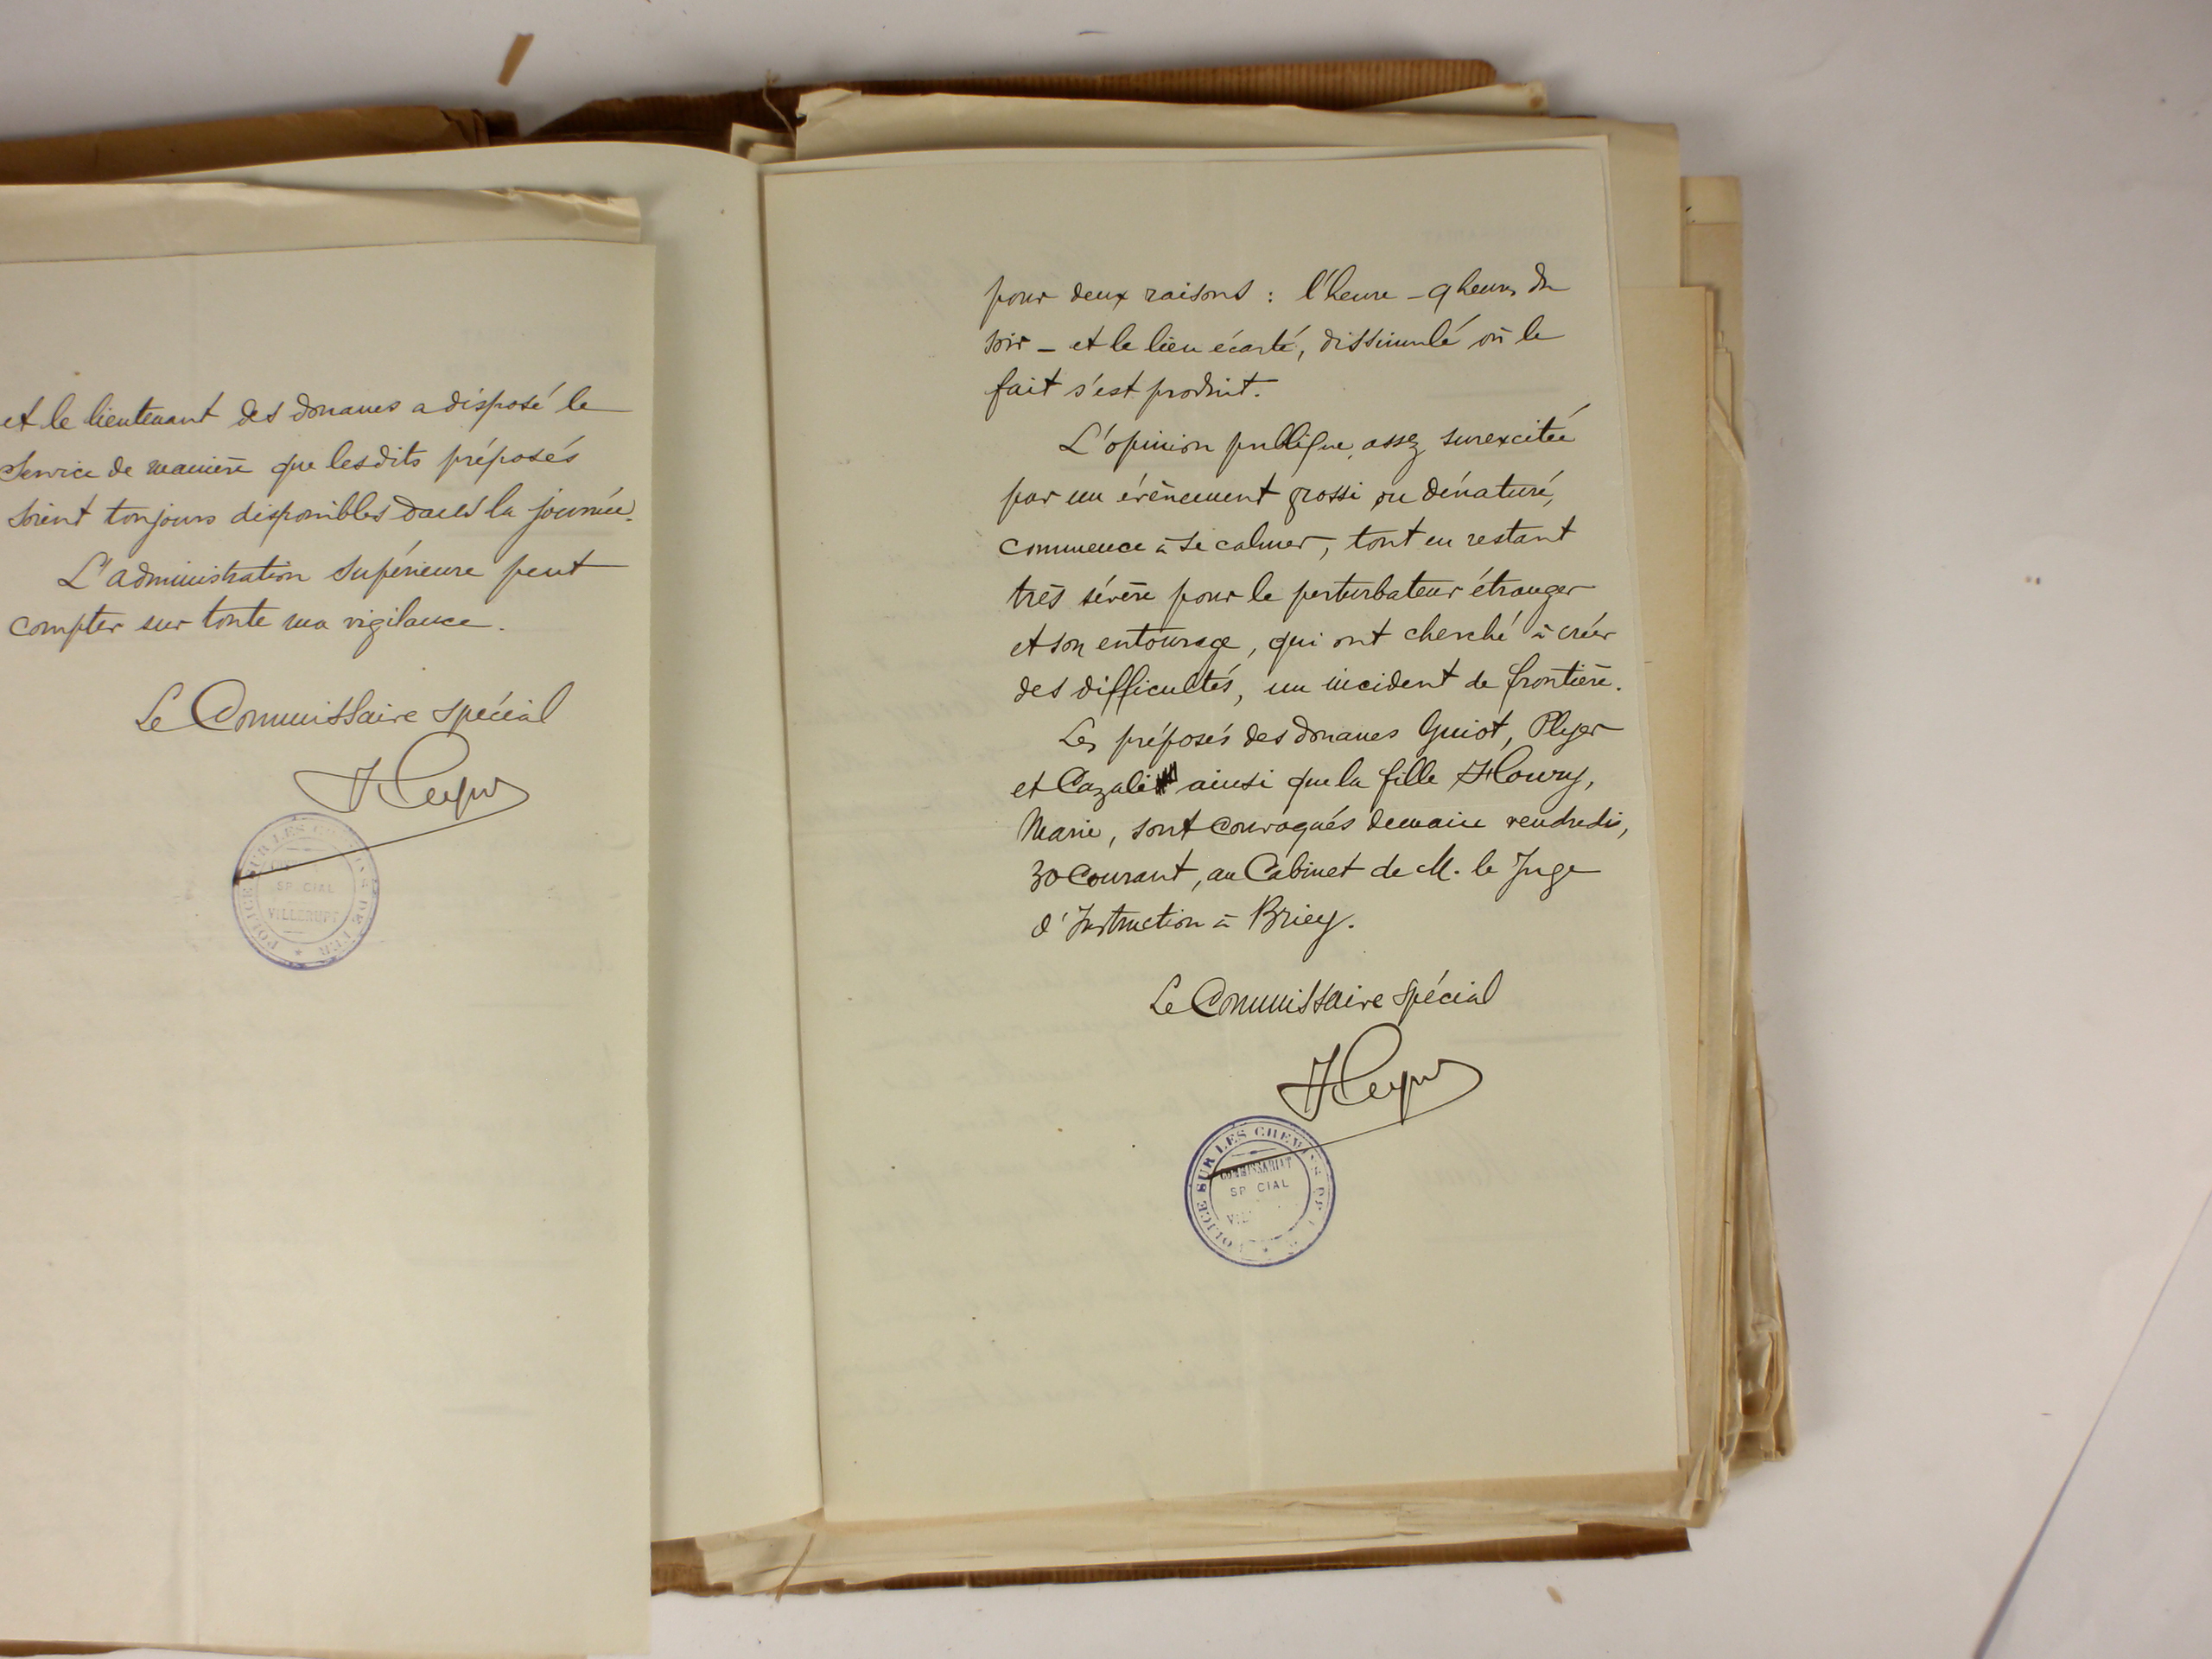 et le lieutenant des douanes a disposé le
service de manière que lesdits préposés
soient toujours disponibles dans la journée.
L'administration supérieure peut
compter sur toute ma vigilance.
Le Commissaire spécial
POLICE SUR LES CHEMINS DE FER
SP CIAL
VILLERUPT
pour deux raisons : l'heure - 9 heures du
soir - et le lieu écarté, dissimulé où le
fait s'est produit.
L'opinion publique, assez surexcitée
par un évènement grossi ou dénaturé,
commence à se calmer, tout en restant
très sévère pour le perturbateur étranger
et son entourage, qui ont cherché à créer
des difficultés, un incident de frontière.
Les préposés des douanes Guiot, Plyer
et Cazali ainsi que la fille Houry,
Marie, sont convoqués demain vendredi,
30 courant, au Cabinet de M. le Juge
d'Instruction à Briey.
Le Commissaire spécial
POLICE SUR LES CHEMINS DE
COMMISSARIAT
SP CIAL